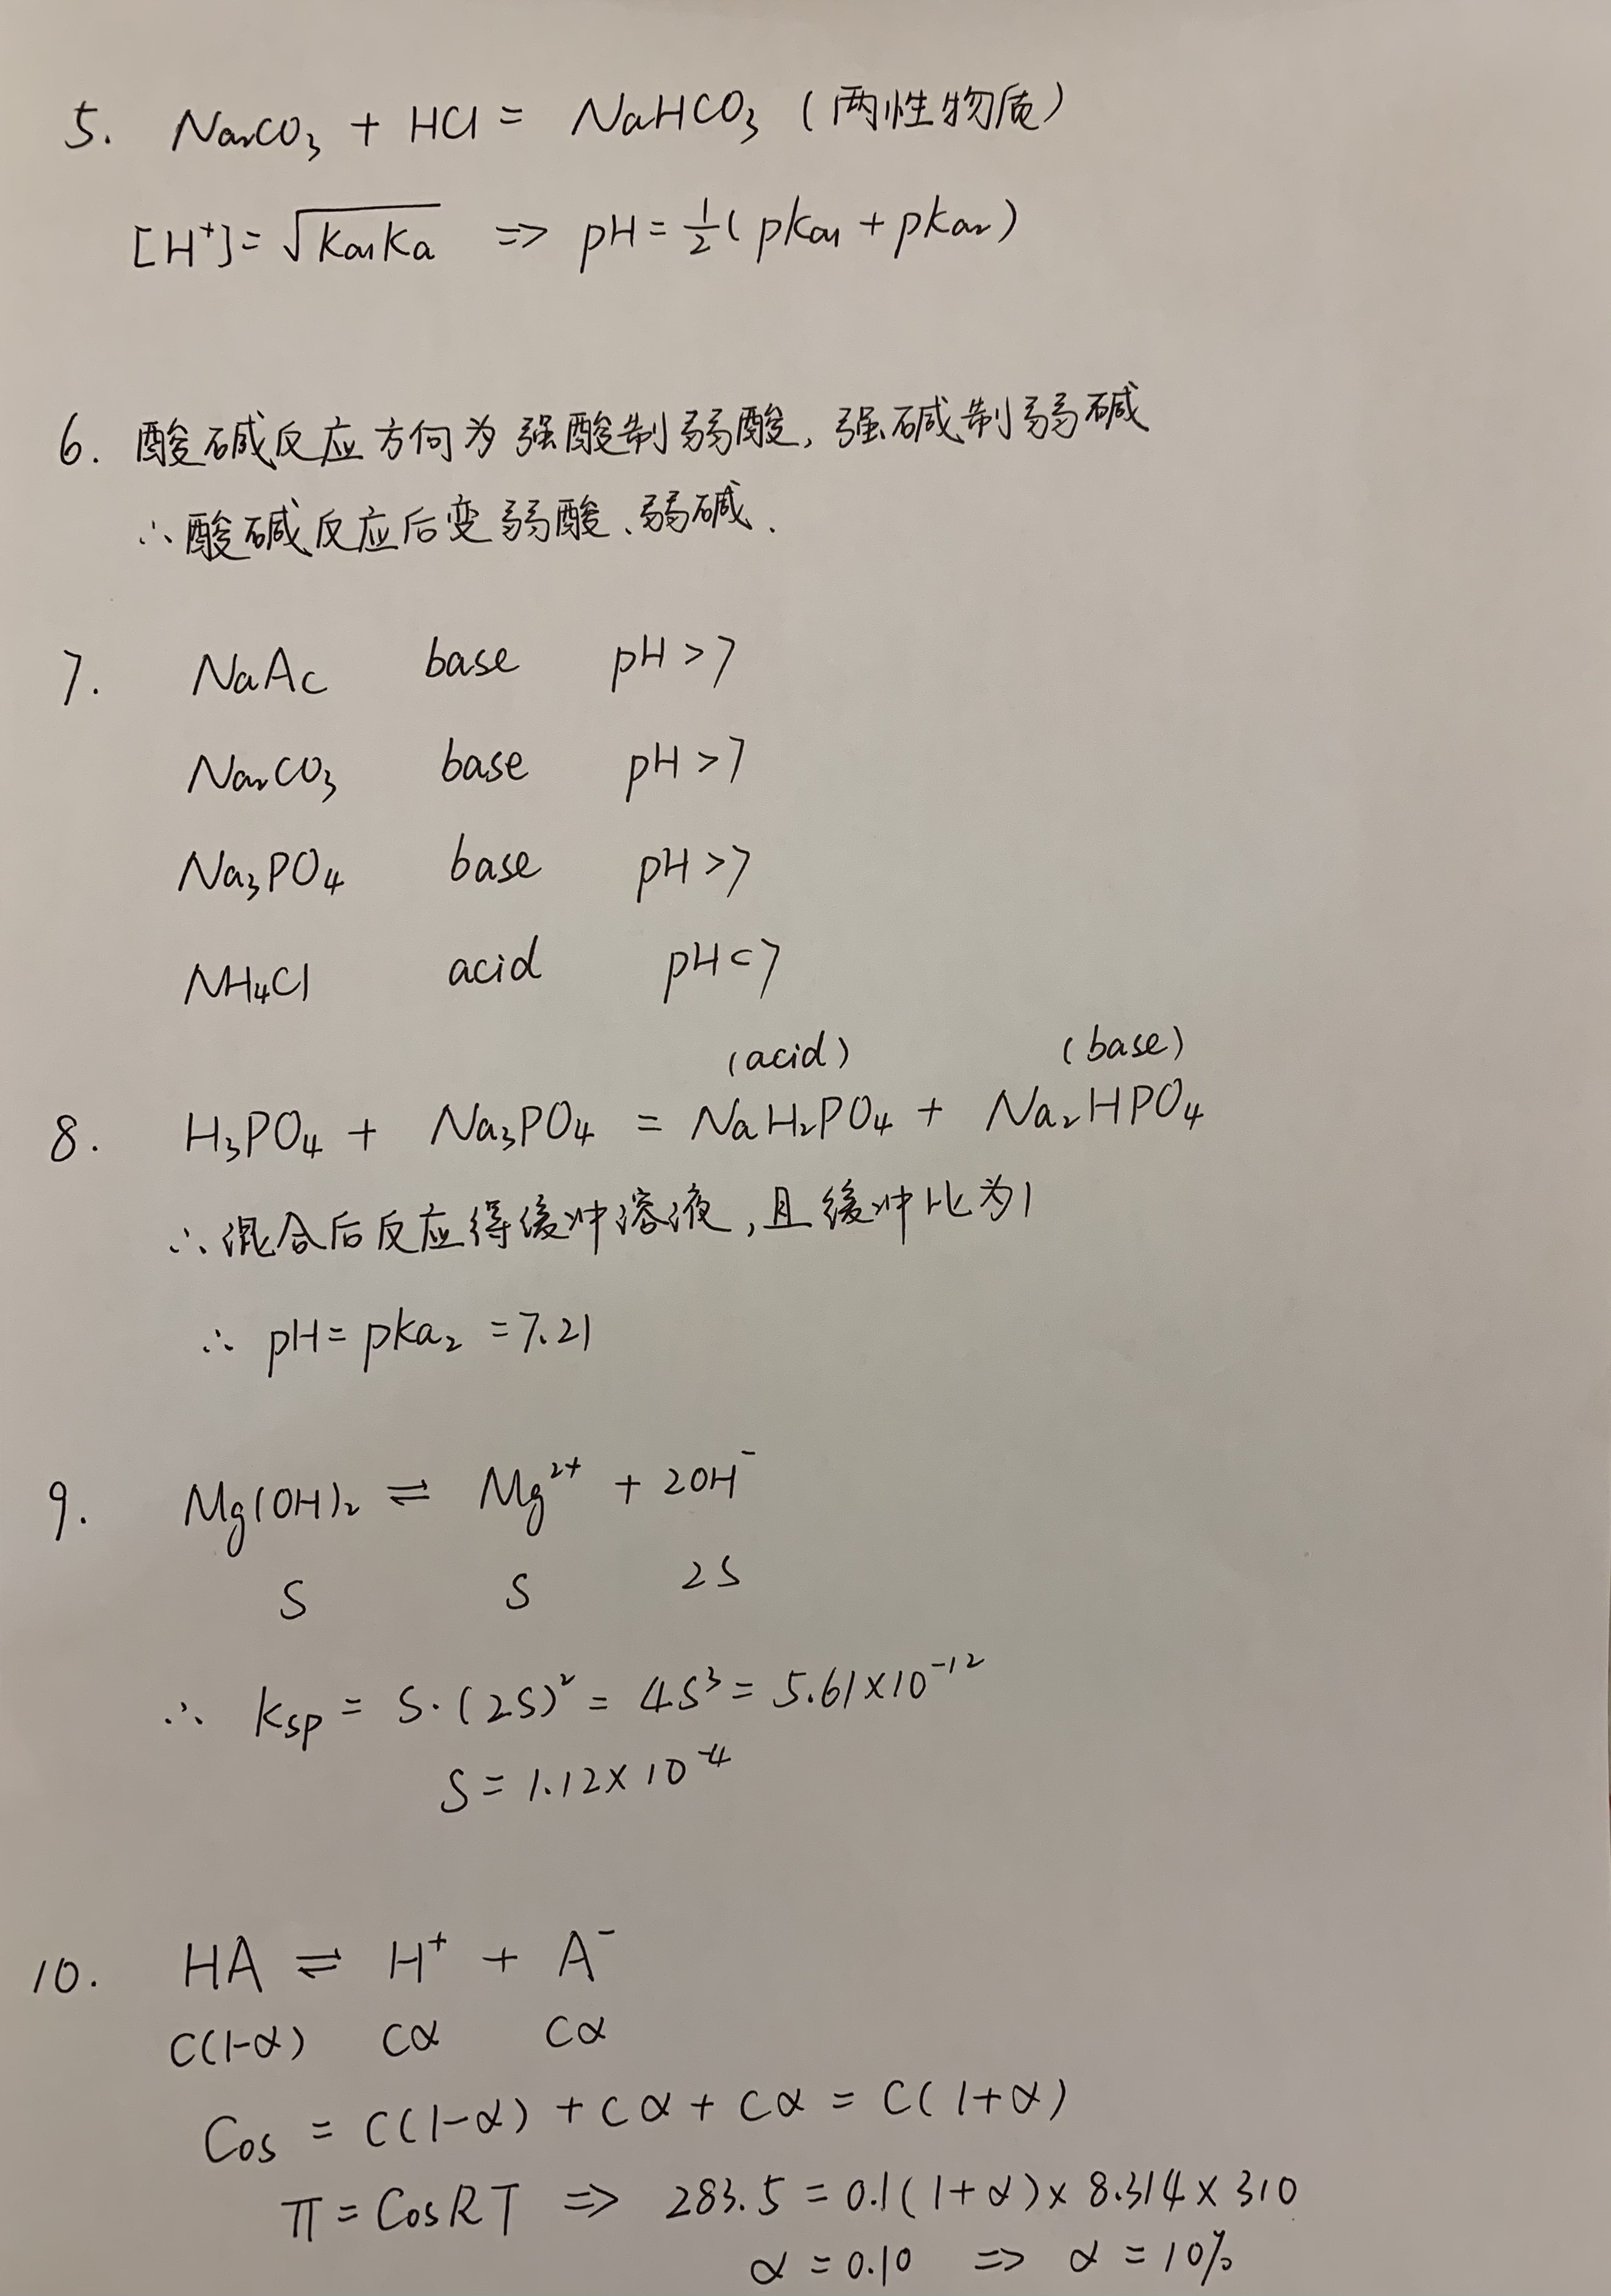 5. Na₂CO₃ + HCl = NaHCO₃ (两性物质)
[H⁺] = √Ka₁Ka ⇒ pH = ½(pka₁ + pka₂)
6. 酸碱反应方向为强酸制弱酸, 强碱制弱碱
∴酸碱反应后变弱酸、弱碱.
7. NaAc base pH>7
Na₂CO₃ base pH>7
Na₃PO₄ base pH>7
NH₄Cl acid pH<7
(acid) (base)
8. H₃PO₄ + Na₃PO₄ = NaH₂PO₄ + Na₂HPO₄
∴混合后反应得缓冲溶液,且缓冲比为1
∴ pH = pka₂ = 7.21
9. Mg(OH)₂ ⇌ Mg²⁺ + 2OH⁻
S S 2S
∴ Ksp = S·(2S)² = 4S³ = 5.61×10⁻¹²
S = 1.12×10⁻⁴
10. HA ⇌ H⁺ + A⁻
C(1-α) Cα Cα
Cos = C(1-α) + Cα + Cα = C(1+α)
π = CosRT ⇒ 283.5 = 0.1(1+α)×8.314×310
α = 0.10 ⇒ α = 10%